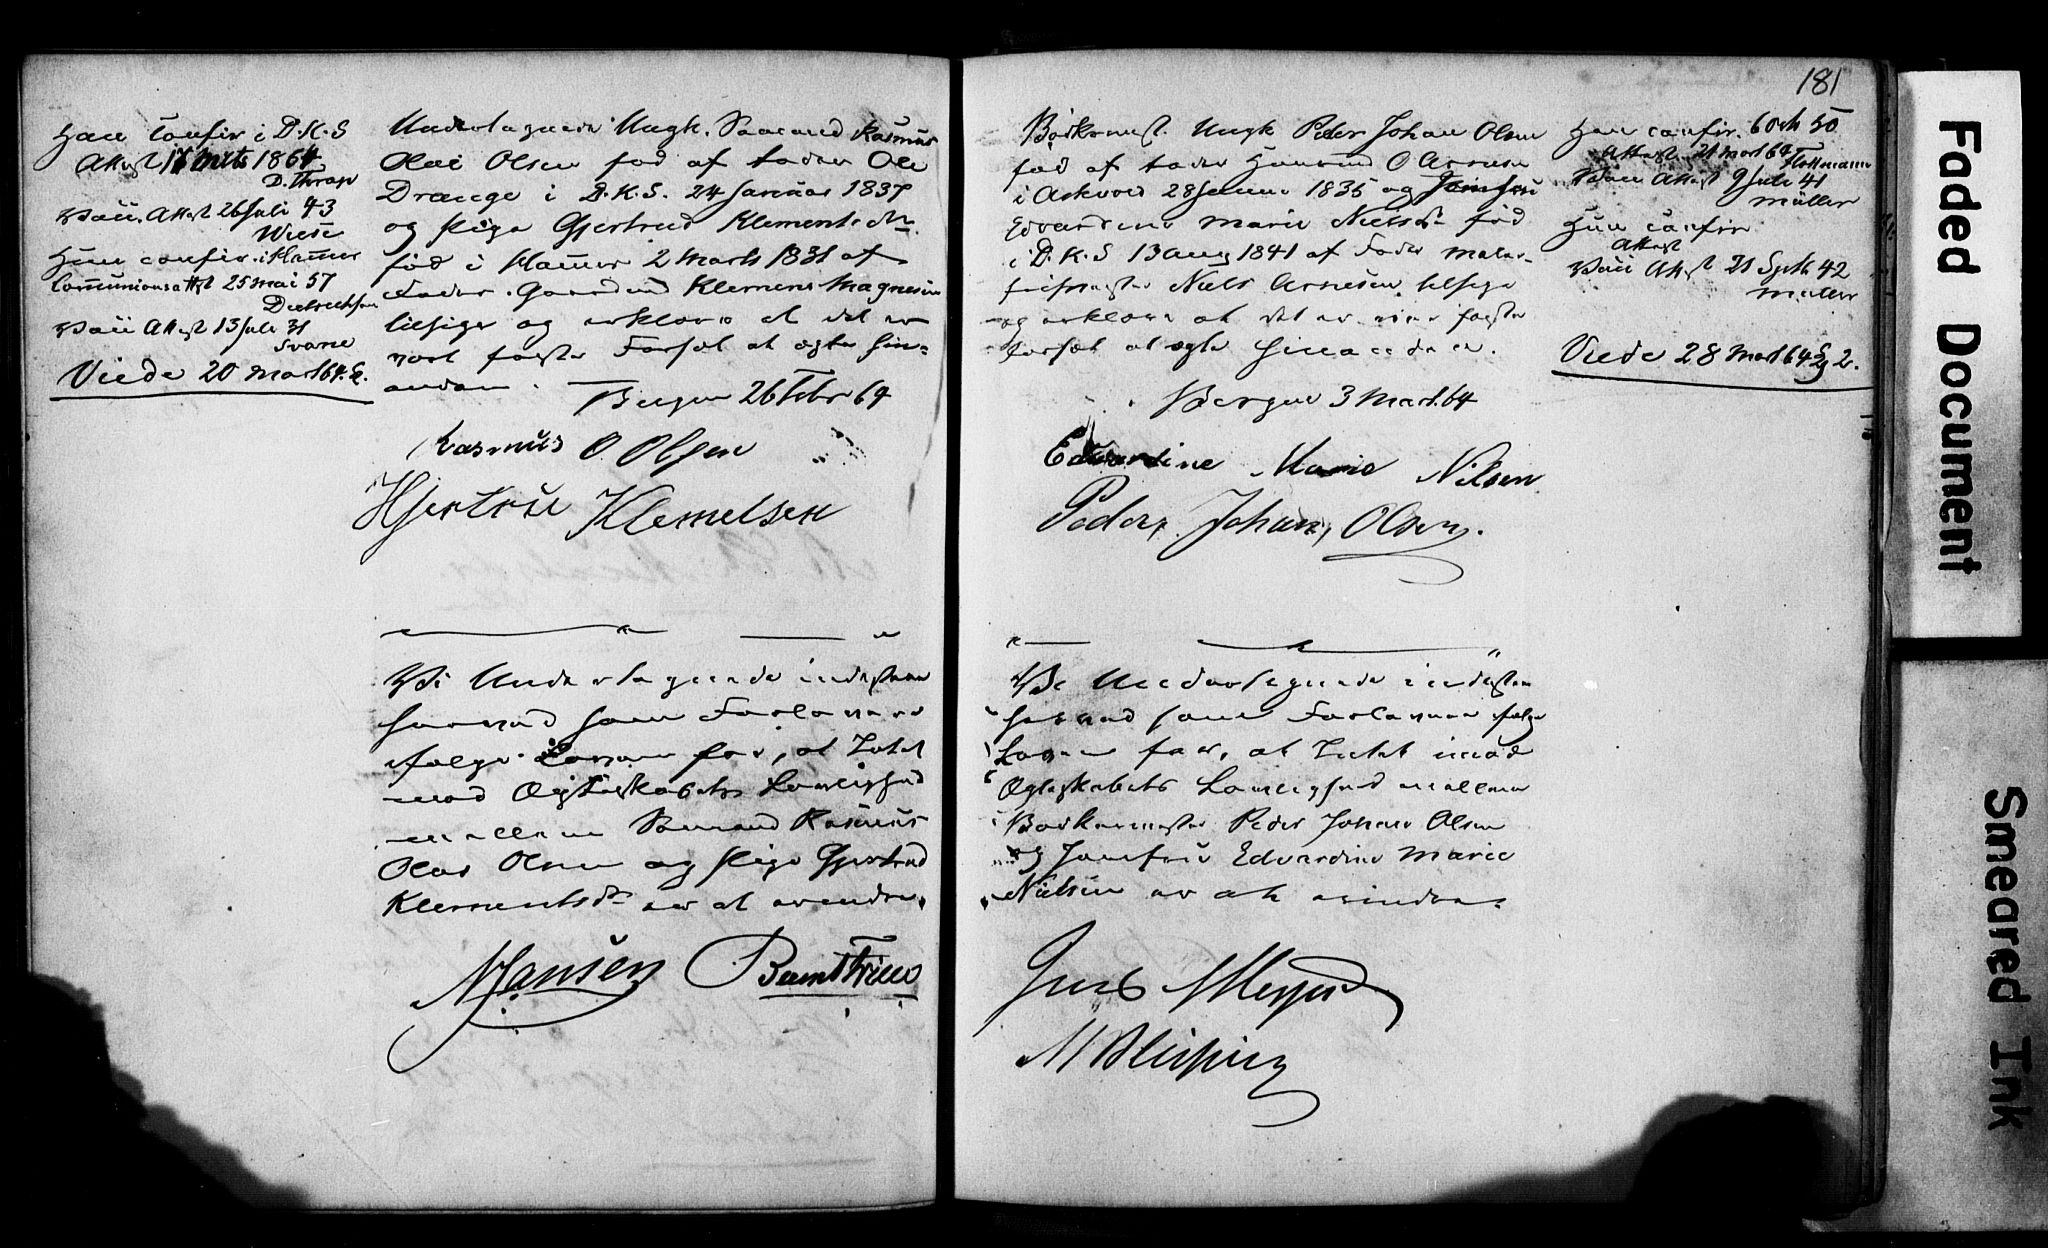 Han confir i D.K.S
Attest 17 Marts 1864
D. Thrap
Vacc. Attest 26 Juli 43
Wiese
Hun confir. i Hammer
Communionsattst 25 Mai 57
Dietrichson
Vacc Attest 13 Juli 31
Svane
Viede 20 Mart 64.
Undertegnede Ungk. Sømand Rasmus
Olai Olsen fød af Fader Ole
Drange i D.K.S. 24 Januar 1837
og Pige Gjertrud Klementsdtr
fød i Hammer 2 Marts 1831 af
Fader Gaardmd Klemens Magnesen
tilsiger og erklære at det er
vort faste Forsæt at ægte hin-
anden.
Bergen 26 Febr 64
Rasmus O Olsen
Hjertrue Klemetsen
Vi Undertegnede indestaae
herved som Forlovere
følge Loven for, at Intet
mod Ægteskabets Lovlighed
mellem Sømand Rasmus
Olai Olsen og Pige Gjertrud
Klementsdtr er at erindre.
N Jansen Berent Friele
181
Bødkermest. Ungk Peder Johan Olsen
fød af Fader Huusmd O Arnesen
i Askvold 28 Januar 1835 og Jomfru
Edvardine Marie Nielsdtr fød
i D.K.S 13 Aug 1841 af Fader Maler-
Niels Arnesen tilsige
og erklære at det er vort faste
Forsæt at ægte hinanden.
Bergen 3 Mart. 64
Edvardine Marie Nilsen
Peder Johan Olsen.
Vi Undertegnede indestaa
herved som Forlovere følge
Loven for, at Intet imod
Ægteskabets Lovlighed mellem
Bødkermester Peder Johan Olsen
og Jomfru Edvardine Marie
Nielsen er at erindre.
Han confir. 6 Octb 50
Attest 21 Mart 64 Flottmann
Vacc Attest 9 Juli 41
Müller
Hun confir
Attest
Vacc Attest 21 Septb 42
Müller
Viede 28 Mart 64 2.
Faded Document
Smeared Ink